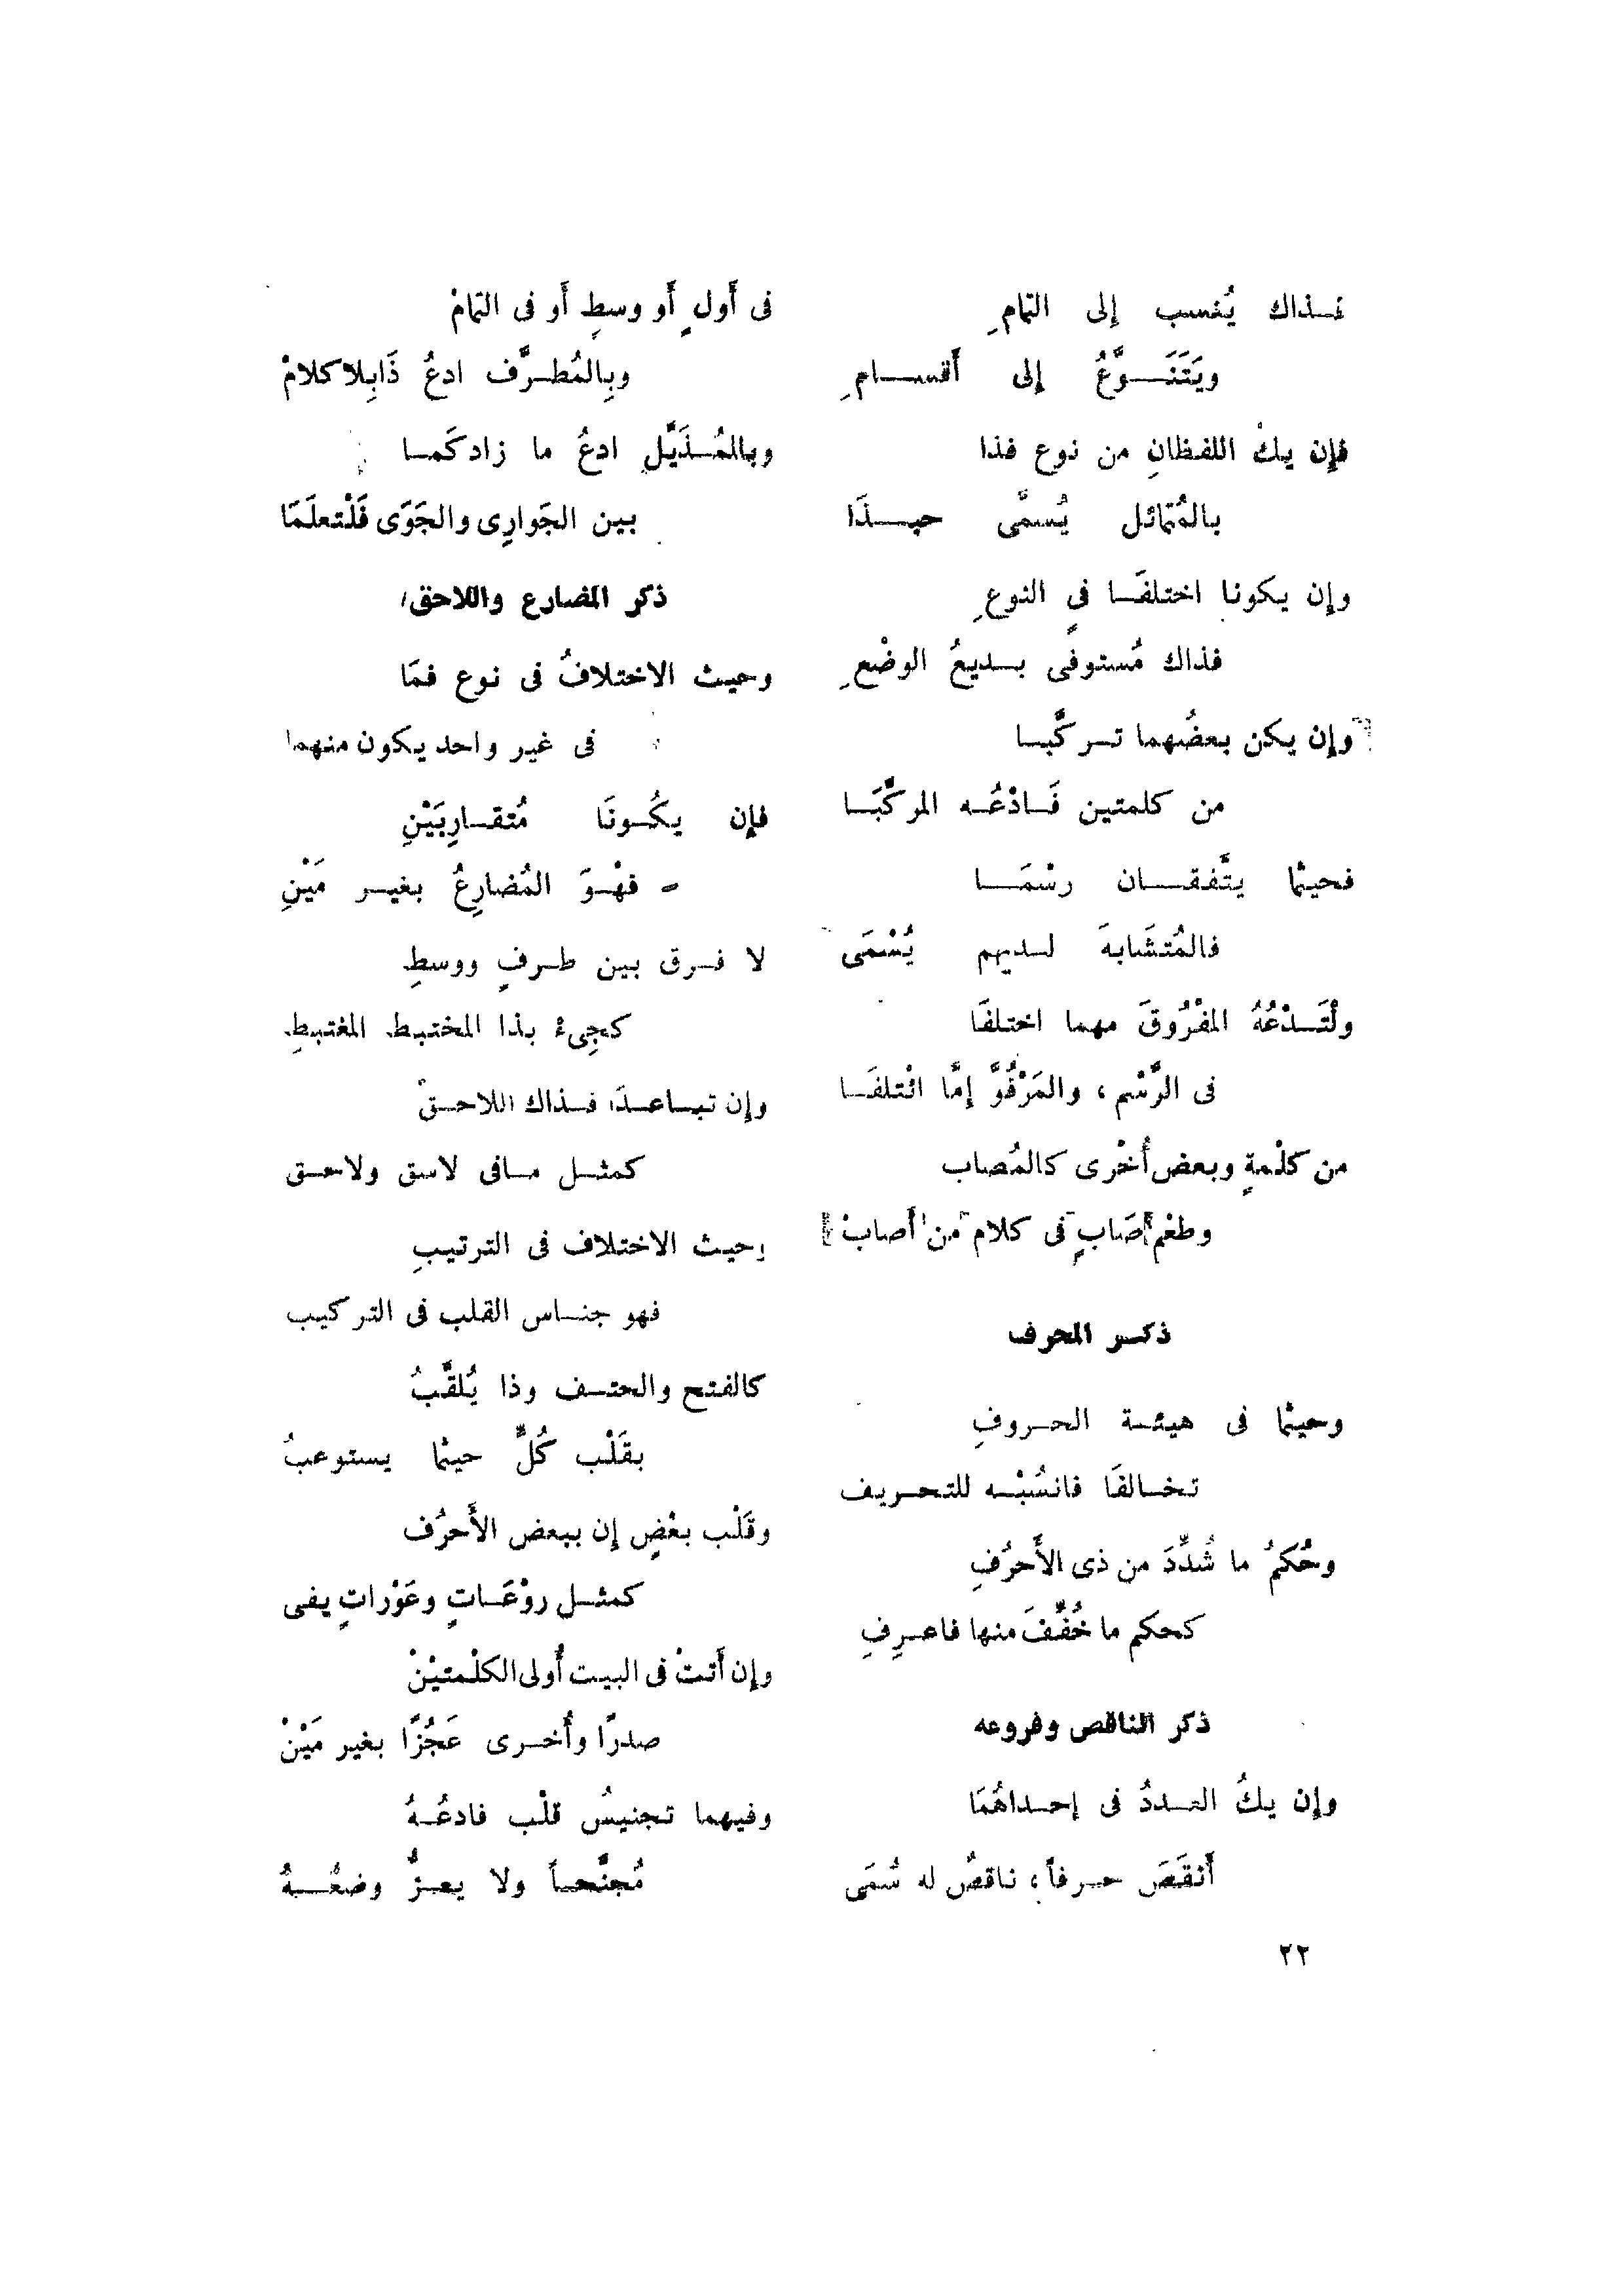 فـذاك يُنسب إلى التمامِ
ويَتَنَـوَّعُ إلى أقسـامِ
فإن يكُ اللفظانِ من نوع فذا
بالمُتماثل يُسمَّى حبـذَا
وإن يكونا اختلفَـا فى النوعِ
فذاك مُستوفًى بـديعُ الوضْعِ
وإن يكن بعضُهما تـركَّبـا
من كلمتين فَـادْعُـه المركَّبَـا
فحيثما يتَّفقـان رسْمَـا
فالمُتشَابهَ لـديهم يُسْمَى
ولْتَـدْعُهُ المفْرُوقَ مهما اختلفَا
فى الرَّسْم ، والمَرْفُوَّ إمَّا ائْتلفَـا
من كلْمةٍ وبعض أُخْرى كالمُصاب
وطعْم صَابٍ فى كلام من أَصابْ
ذكـر المحرف
وحيثما فى هيئـة الحـروفِ
تخـالفَا فانسُبْـه للتحـريف
وحُكمُ ما شُدِّدَ من ذى الأَحرُفِ
كحكم ما خُفِّفَ منها فاعـرِفِ
ذكر الناقص وفروعه
وإن يكُ العـددُ فى إحـداهُمَا
أَنقَصَ حـرفاً ، ناقصٌ له سُمَى
فى أَولٍ أَو وسطٍ أَو فى التمامْ
وبِالمُطـرَّف ادعُ ذَابِلا كلامْ
وبالمُـذَيَّلِ ادعُ ما زاد كَمـا
بين الجَوارِى والجَوَى فَلْتعلَمَا
ذكر المضارع واللاحق
وحيث الاختلافُ فى نوع فمَا
فى غير واحد يكون منهما
فإن يكُـونَا مُتقـارِبَيْنِ
فهْـوَ المُضارِعُ بغيـر مَيْنِ
لا فـرق بين طـرفٍ ووسطِ
كجِىءْ بذا المختبط المغتبطِ
وإن تبـاعـدَا فـذاك اللاحـقْ
كمثـل مـافى لاسق ولاحـق
وحيث الاختلاف فى الترتيبِ
فهو جنـاس القلب فى التركيب
كالفتح والحتـف وذا يُلقَّبُ
بقَلْب كُلٍّ حيثما يستوعبُ
وقَلْب بعْضٍ إن ببعض الأَحرُف
كمثـل روْعَـاتٍ وعَوْراتٍ يفى
وإن أَتتْ فى البيت أُولى الكلْمتيْنْ
صدرًا وأُخـرى عَجُزًا بغير مَيْنْ
وفيهما تجنيسُ قلْب فادعُـهُ
مُجنَّحـاً ولا يعـزُّ وضعُـهُ
٢٢